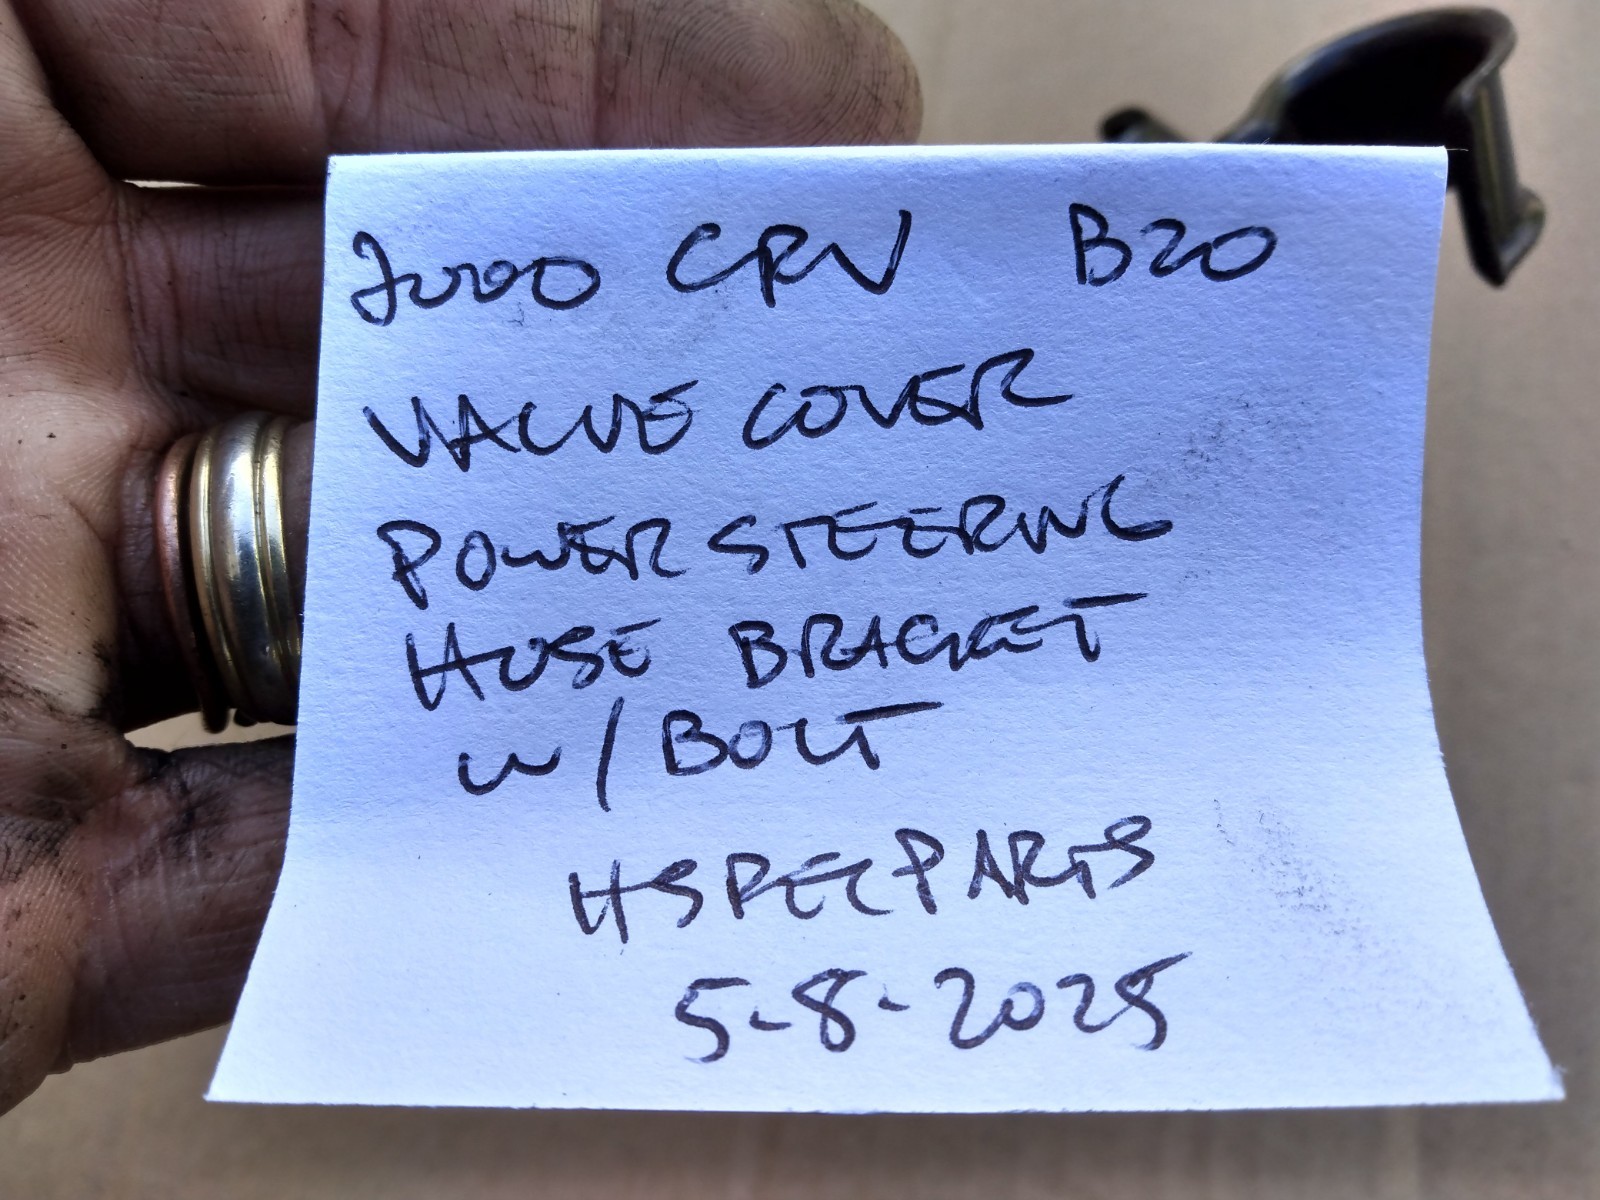 2000 CRV B20
VALVE COVER
POWER STEERING
HOSE BRACKET
w/ BOLT
HSPECPARTS
5-8-2025